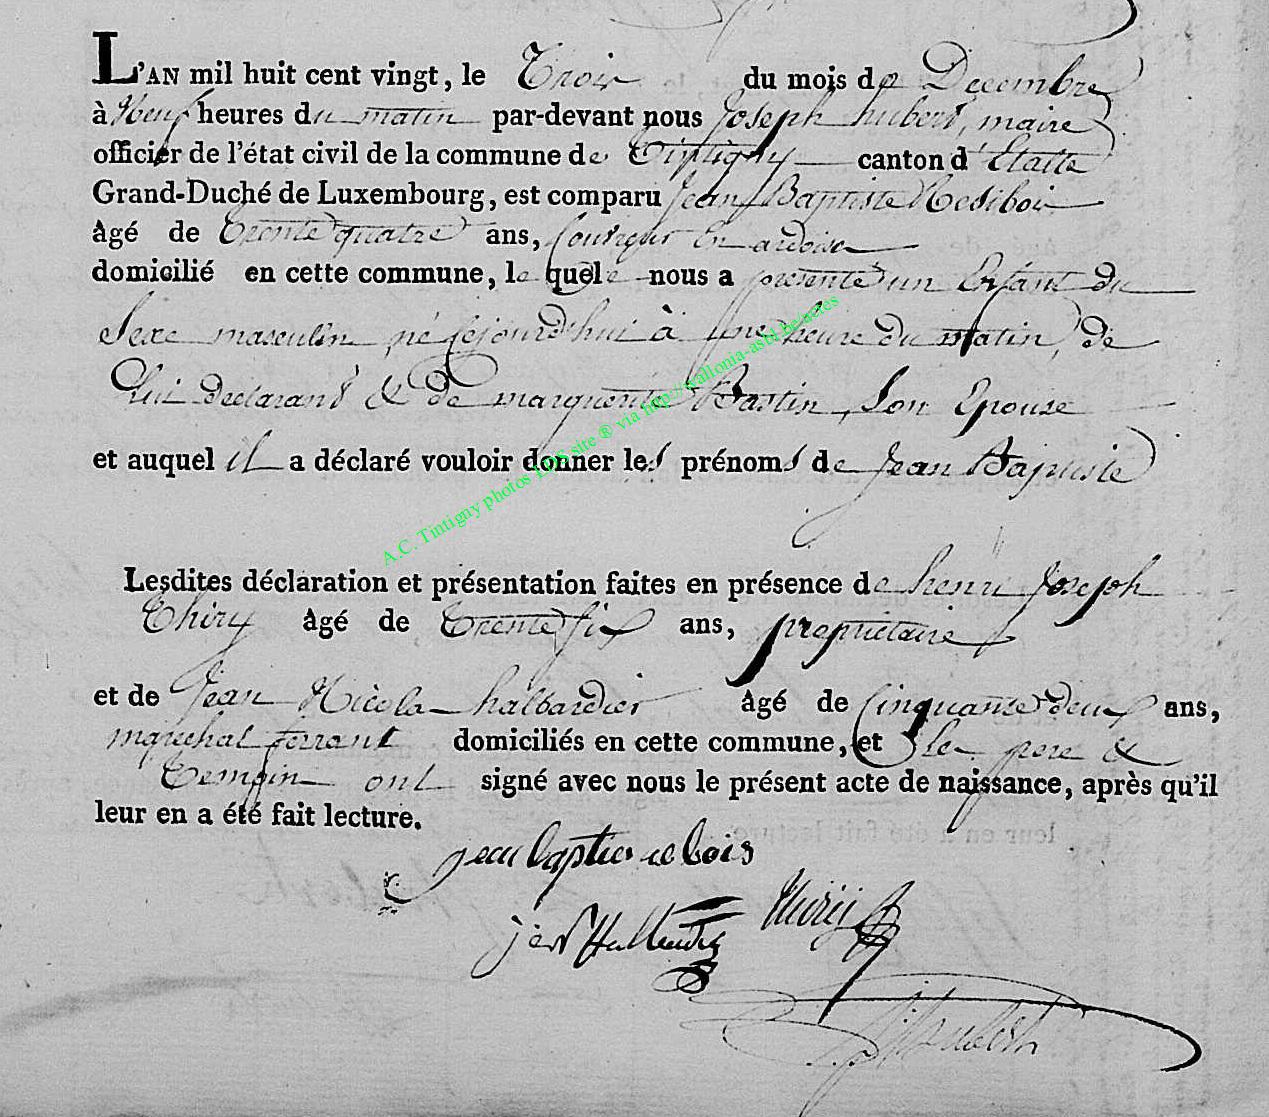 L'AN mil huit cent vingt, le Trois du mois de Decembre
à Neuf heures du matin par-devant nous Joseph hubert, maire
officier de l'état civil de la commune de Tintigny canton d'Etalle
Grand-Duché de Luxembourg, est comparu Jean Baptiste
âgé de Trente quatre ans, Couvreur En ardoise
domicilié en cette commune, le quel nous a presenté un Enfant du
Sexe masculin, né cejourd'hui à une heure du matin, de
Lui declarant & de marguerite Bastin, Son Epouse
et auquel il a déclaré vouloir donner les prénoms de Jean Baptiste
Lesdites déclaration et présentation faites en présence de henri Joseph
Thiry âgé de Trente six ans, proprietaire
et de Jean Nicola halbardier âgé de Cinquante deux ans,
marechal ferrant domiciliés en cette commune, et le pere &
Temoin ont signé avec nous le présent acte de naissance, après qu'il
leur en a été fait lecture.
A.C. Tintigny photos LDS site ® via http://wallonia-asbl.be/actes